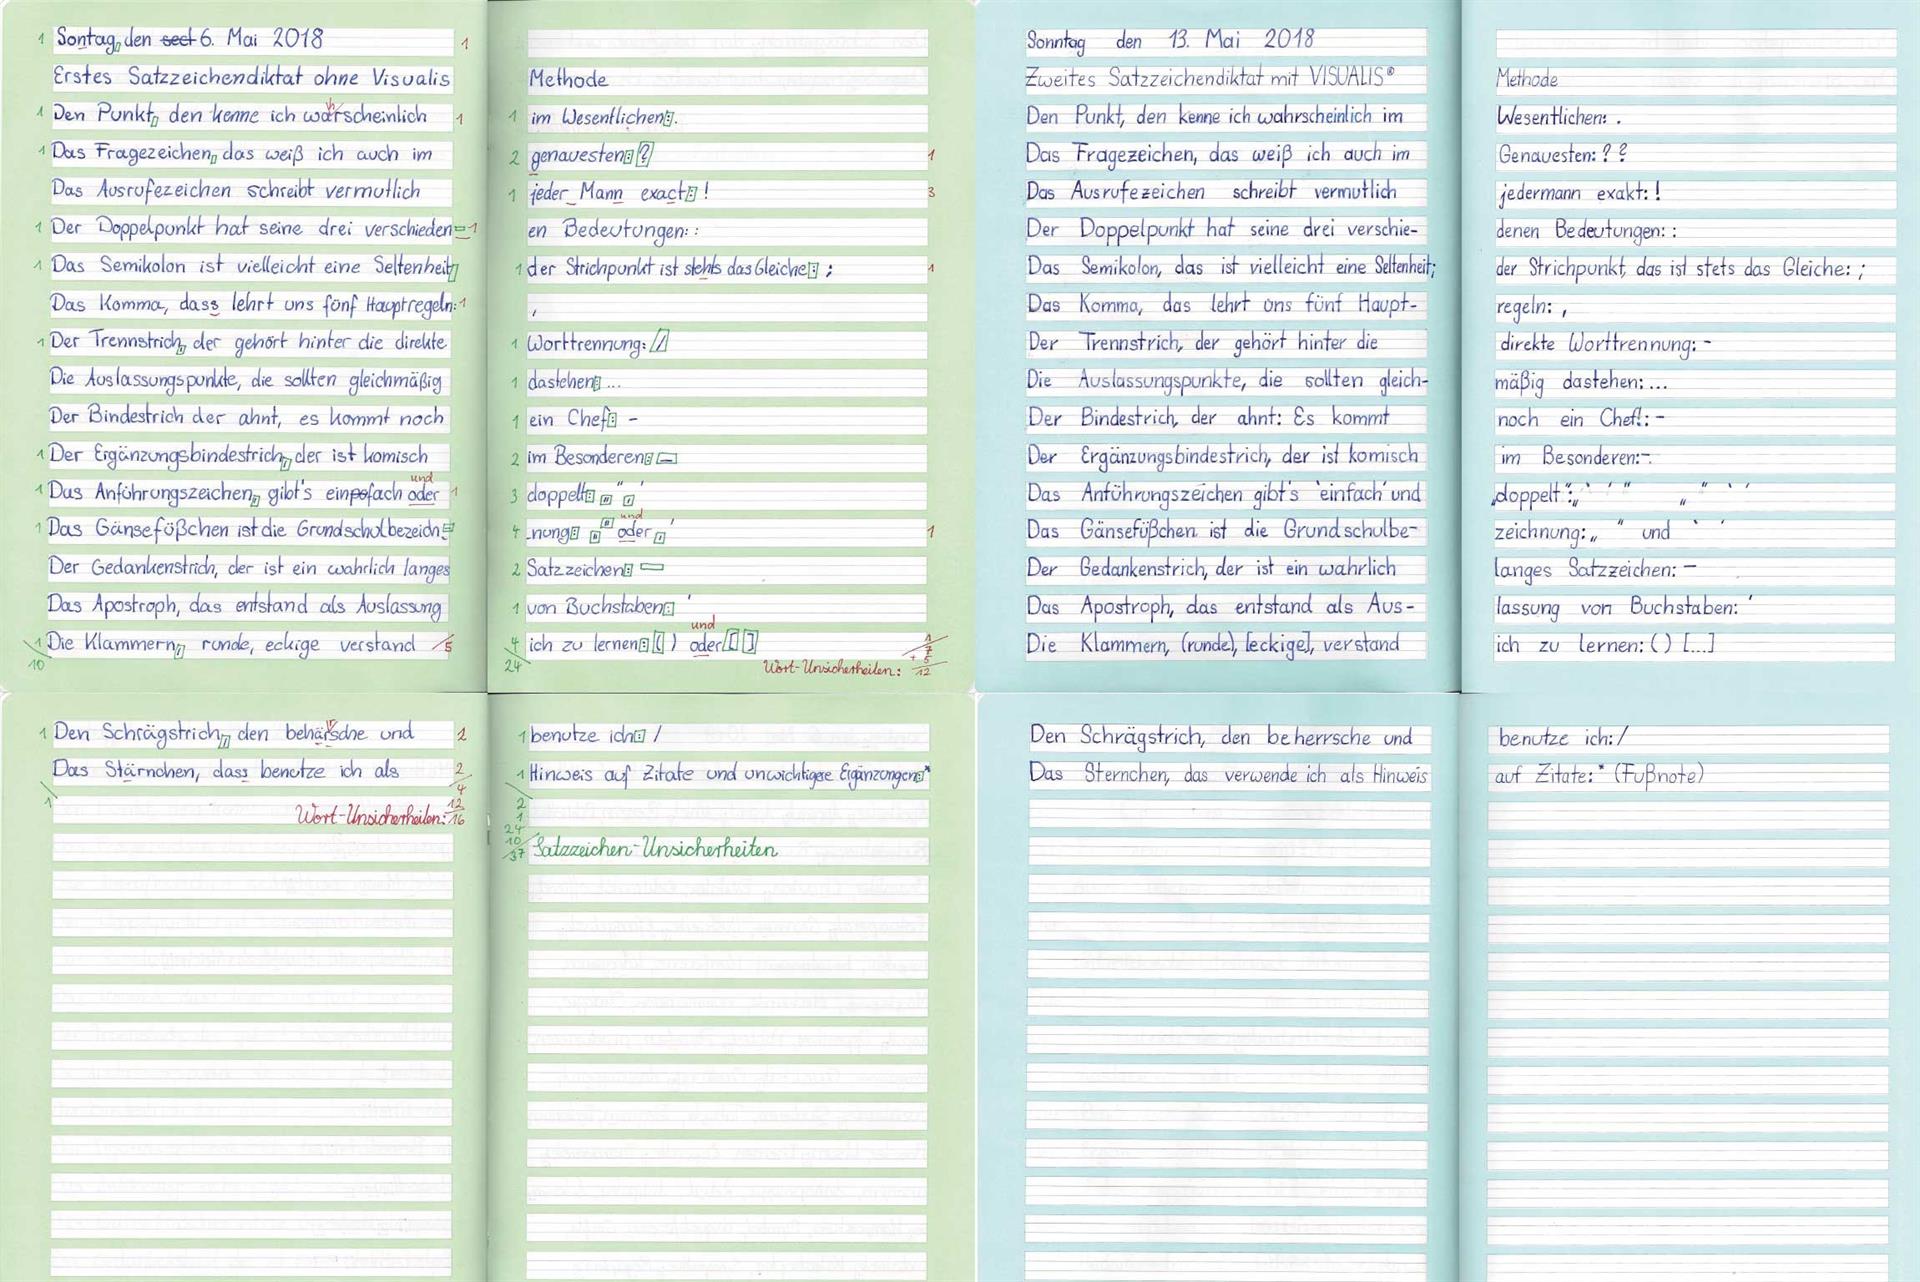 Sontag, den sect 6. Mai 2018
Erstes Satzzeichendiktat ohne Visualis
Methode
Den Punkt, den kenne ich warscheinlich
im Wesentlichen: .
Das Fragezeichen, das weiß ich auch im
genauesten: ?
Das Ausrufezeichen schreibt vermutlich
jeder Mann exact: !
Der Doppelpunkt hat seine drei verschieden-
en Bedeutungen: :
Das Semikolon ist vielleicht eine Seltenheit;
der Strichpunkt ist stehts das Gleiche: ;
Das Komma, dass lehrt uns fünf Hauptregeln:
,
Der Trennstrich, der gehört hinter die direkte
Worttrennung: /
Die Auslassungspunkte, die sollten gleichmäßig
dastehen: ...
Der Bindestrich der ahnt, es kommt noch
ein Chef: -
Der Ergänzungsbindestrich, der ist komisch
im Besonderen: -
und
Das Anführungszeichen, gibt's einpofach oder
doppelt: „ “ ‚ ‘
Das Gänsefößchen ist die Grundschulbezeich=
und
-nung: „ “ oder ‚ ‘
Der Gedankenstrich, der ist ein wahrlich langes
Satzzeichen: –
Das Apostroph, das entstand als Auslassung
von Buchstaben: '
Die Klammern, runde, eckige verstand
und
ich zu lernen: ( ) oder [ ]
Wort-Unsicherheiten: 12
Den Schrägstrich, den behärsche und
benutze ich: /
Das Stärnchen, dass benutze ich als
Hinweis auf Zitate und unwichtigere Ergänzungen: *
Wort-Unsicherheiten: 16
37 Satzzeichen-Unsicherheiten
Sonntag den 13. Mai 2018
Zweites Satzzeichendiktat mit VISUALIS®
Methode
Den Punkt, den kenne ich wahrscheinlich im
Wesentlichen: .
Das Fragezeichen, das weiß ich auch im
Genauesten: ? ?
Das Ausrufezeichen schreibt vermutlich
jedermann exakt: !
Der Doppelpunkt hat seine drei verschie-
denen Bedeutungen: :
Das Semikolon, das ist vielleicht eine Seltenheit;
der Strichpunkt, das ist stets das Gleiche: ;
Das Komma, das lehrt uns fünf Haupt-
regeln: ,
Der Trennstrich, der gehört hinter die
direkte Worttrennung: -
Die Auslassungspunkte, die sollten gleich-
mäßig dastehen: ...
Der Bindestrich, der ahnt: Es kommt
noch ein Chef!: -
Der Ergänzungsbindestrich, der ist komisch
im Besonderen: -
Das Anführungszeichen gibt's 'einfach' und
„doppelt“: „ ‘ ’ “ „ “ ‘ ’
Das Gänsefüßchen ist die Grundschulbe-
zeichnung: „ “ und ‘ ’
Der Gedankenstrich, der ist ein wahrlich
langes Satzzeichen: –
Das Apostroph, das entstand als Aus-
lassung von Buchstaben: '
Die Klammern, (runde), [eckige], verstand
ich zu lernen: ( ) [...]
Den Schrägstrich, den beherrsche und
benutze ich: /
Das Sternchen, das verwende ich als Hinweis
auf Zitate: * (Fußnote)